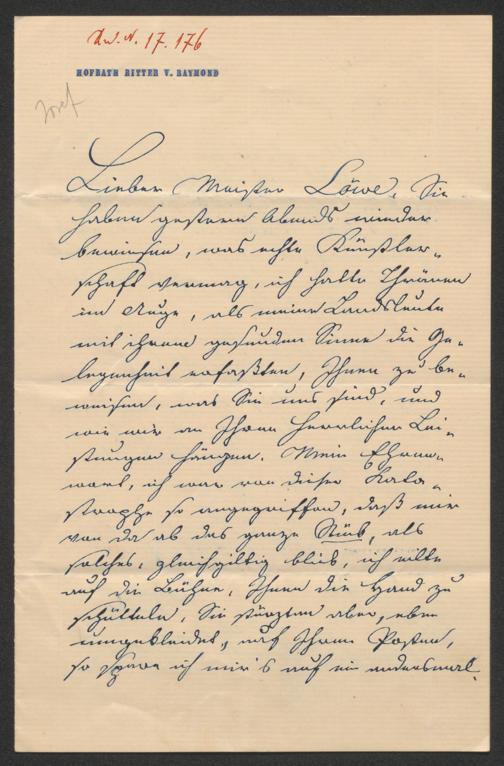 N. 17.176
HOFRATH RITTER V. RAYMOND
Josef
Lieber Meister Löwe, Sie
haben gestern Abends wieder
bewiesen, was echte Künstler-
schaft vermag, ich hatte Thränen
im Auge, als meine Landsleute
mit ihrem gesunden Sinne die Ge-
legenheit erfaßten, Ihnen zu be-
weisen, was Sie uns sind, und
wie wir an Ihren herrlichen Lei-
stungen hängen. Mein Ehren-
wort, ich war von dieser Kata-
strophe so angegriffen, daß mir
von da ab das ganze Stück, als
solches, gleichgiltig blieb, ich eilte
auf die Bühne, Ihnen die Hand zu
schütteln, Sie stürzten aber, eben
umgekleidet, auf Ihren Posten,
so spare ich mir's auf ein andersmal.